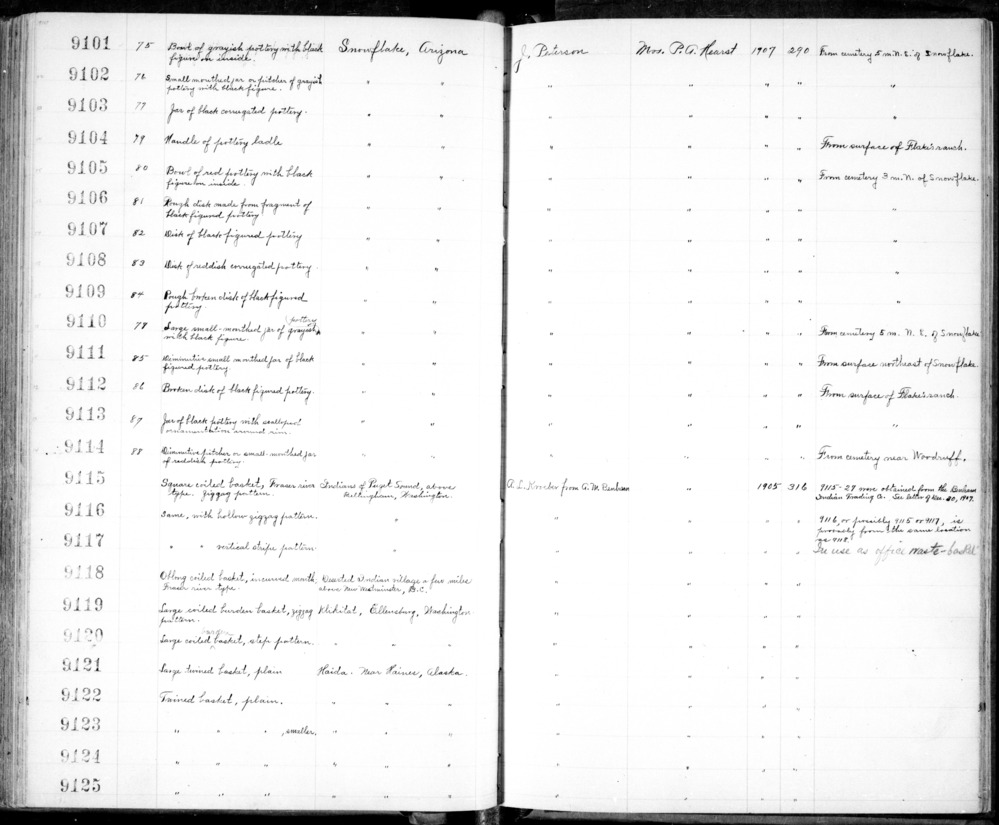 9101 75 Bowl of grayish pottery with black Snowflake, Arizona J. Peterson Mrs. P. A. Hearst 1907 290 From cemetery 5 m. N. E. of Snowflake.
figure on inside.
9102 76 Small mouthed jar or pitcher of grayish " " " " " " "
pottery with black figure.
9103 77 Jar of black corrugated pottery. " " " " " " "
9104 79 Handle of pottery ladle " " " " " " From surface of Flake's ranch.
9105 80 Bowl of red pottery with black " " " " " " From cemetery 3 m. N. of Snowflake.
figure on inside.
9106 81 Rough disk made from fragment of " " " " " " "
black figured pottery
9107 82 Disk of black figured pottery " " " " " " "
9108 83 Disk of reddish corrugated pottery. " " " " " " "
9109 84 Rough broken disk of black figured " " " " " " "
pottery.
9110 78 Large small-mouthed jar of grayish pottery " " " " " " From cemetery 5 m. N. E. of Snowflake
with black figure.
9111 85 Diminutive small mouthed jar of black " " " " " " From surface northeast of Snowflake.
figured pottery
9112 86 Broken disk of black figured pottery. " " " " " " From surface of Flake's ranch.
9113 87 Jar of black pottery with scalloped " " " " " " "
ornamentation around rim.
9114 88 Diminutive pitcher or small-mouthed jar " " " " " " From cemetery near Woodruff.
of reddish pottery.
9115 Square coiled basket, Fraser river Indians of Puget Sound, above A. L. Kroeber from A. M. Benham " 1905 316 9115-29 were obtained from the Benham
type. Zigzag pattern. Bellingham, Washington. Indian Trading Co. See letter of Dec. 20, 1907.
9116 Same, with hollow zigzag pattern. " " " " " 9116, or possibly 9115 or 9117, is
probably from the same location
as 9118.
9117 " " vertical stripe pattern " " " " " In use as office waste-basket
9118 Oblong coiled basket, incurved mouth, Deserted Indian village a few miles " " " "
Fraser river type. above New Westminster, B.C.
9119 Large coiled burden basket, zigzag Klikitat, Ellensburg, Washington " " " "
pattern.
9120 Large coiled burden basket, step pattern. " " " " " " "
9121 Large twined basket, plain Haida. Near Haines, Alaska. " " " "
9122 Twined basket, plain. " " " " " " "
9123 " " " , smaller. " " " " " " "
9124 " " " " " " " " " "
9125 " " " " " " " " " "